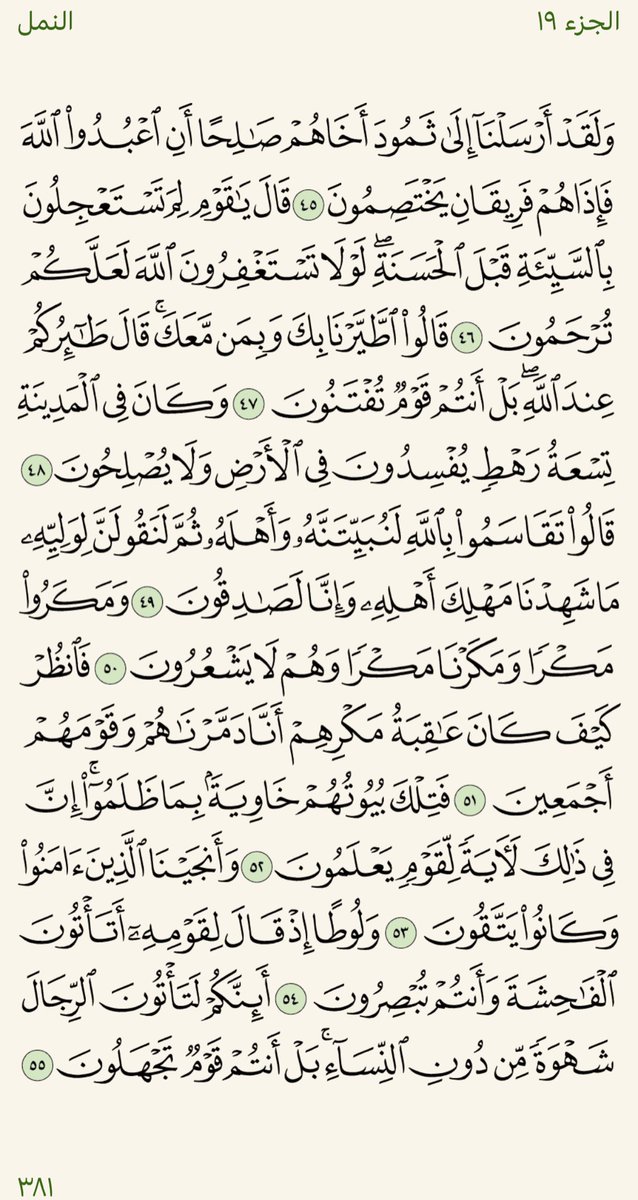 الجزء ١٩
النمل
وَلَقَدۡ أَرۡسَلۡنَآ إِلَىٰ ثَمُودَ أَخَاهُمۡ صَٰلِحًا أَنِ ٱعۡبُدُواْ ٱللَّهَ
فَإِذَا هُمۡ فَرِيقَانِ يَخۡتَصِمُونَ ٤٥ قَالَ يَٰقَوۡمِ لِمَ تَسۡتَعۡجِلُونَ
بِٱلسَّيِّئَةِ قَبۡلَ ٱلۡحَسَنَةِۖ لَوۡلَا تَسۡتَغۡفِرُونَ ٱللَّهَ لَعَلَّكُمۡ
تُرۡحَمُونَ ٤٦ قَالُواْ ٱطَّيَّرۡنَا بِكَ وَبِمَن مَّعَكَۚ قَالَ طَٰٓئِرُكُمۡ
عِندَ ٱللَّهِۖ بَلۡ أَنتُمۡ قَوۡمٞ تُفۡتَنُونَ ٤٧ وَكَانَ فِي ٱلۡمَدِينَةِ
تِسۡعَةُ رَهۡطٖ يُفۡسِدُونَ فِي ٱلۡأَرۡضِ وَلَا يُصۡلِحُونَ ٤٨
قَالُواْ تَقَاسَمُواْ بِٱللَّهِ لَنُبَيِّتَنَّهُۥ وَأَهۡلَهُۥ ثُمَّ لَنَقُولَنَّ لِوَلِيِّهِۦ
مَا شَهِدۡنَا مَهۡلِكَ أَهۡلِهِۦ وَإِنَّا لَصَٰدِقُونَ ٤٩ وَمَكَرُواْ
مَكۡرٗا وَمَكَرۡنَا مَكۡرٗا وَهُمۡ لَا يَشۡعُرُونَ ٥٠ فَٱنظُرۡ
كَيۡفَ كَانَ عَٰقِبَةُ مَكۡرِهِمۡ أَنَّا دَمَّرۡنَٰهُمۡ وَقَوۡمَهُمۡ
أَجۡمَعِينَ ٥١ فَتِلۡكَ بُيُوتُهُمۡ خَاوِيَةَۢ بِمَا ظَلَمُوٓاْۚ إِنَّ
فِي ذَٰلِكَ لَأٓيَةٗ لِّقَوۡمٖ يَعۡلَمُونَ ٥٢ وَأَنجَيۡنَا ٱلَّذِينَ ءَامَنُواْ
وَكَانُواْ يَتَّقُونَ ٥٣ وَلُوطًا إِذۡ قَالَ لِقَوۡمِهِۦٓ أَتَأۡتُونَ
ٱلۡفَٰحِشَةَ وَأَنتُمۡ تُبۡصِرُونَ ٥٤ أَئِنَّكُمۡ لَتَأۡتُونَ ٱلرِّجَالَ
شَهۡوَةٗ مِّن دُونِ ٱلنِّسَآءِۚ بَلۡ أَنتُمۡ قَوۡمٞ تَجۡهَلُونَ ٥٥
٣٨١